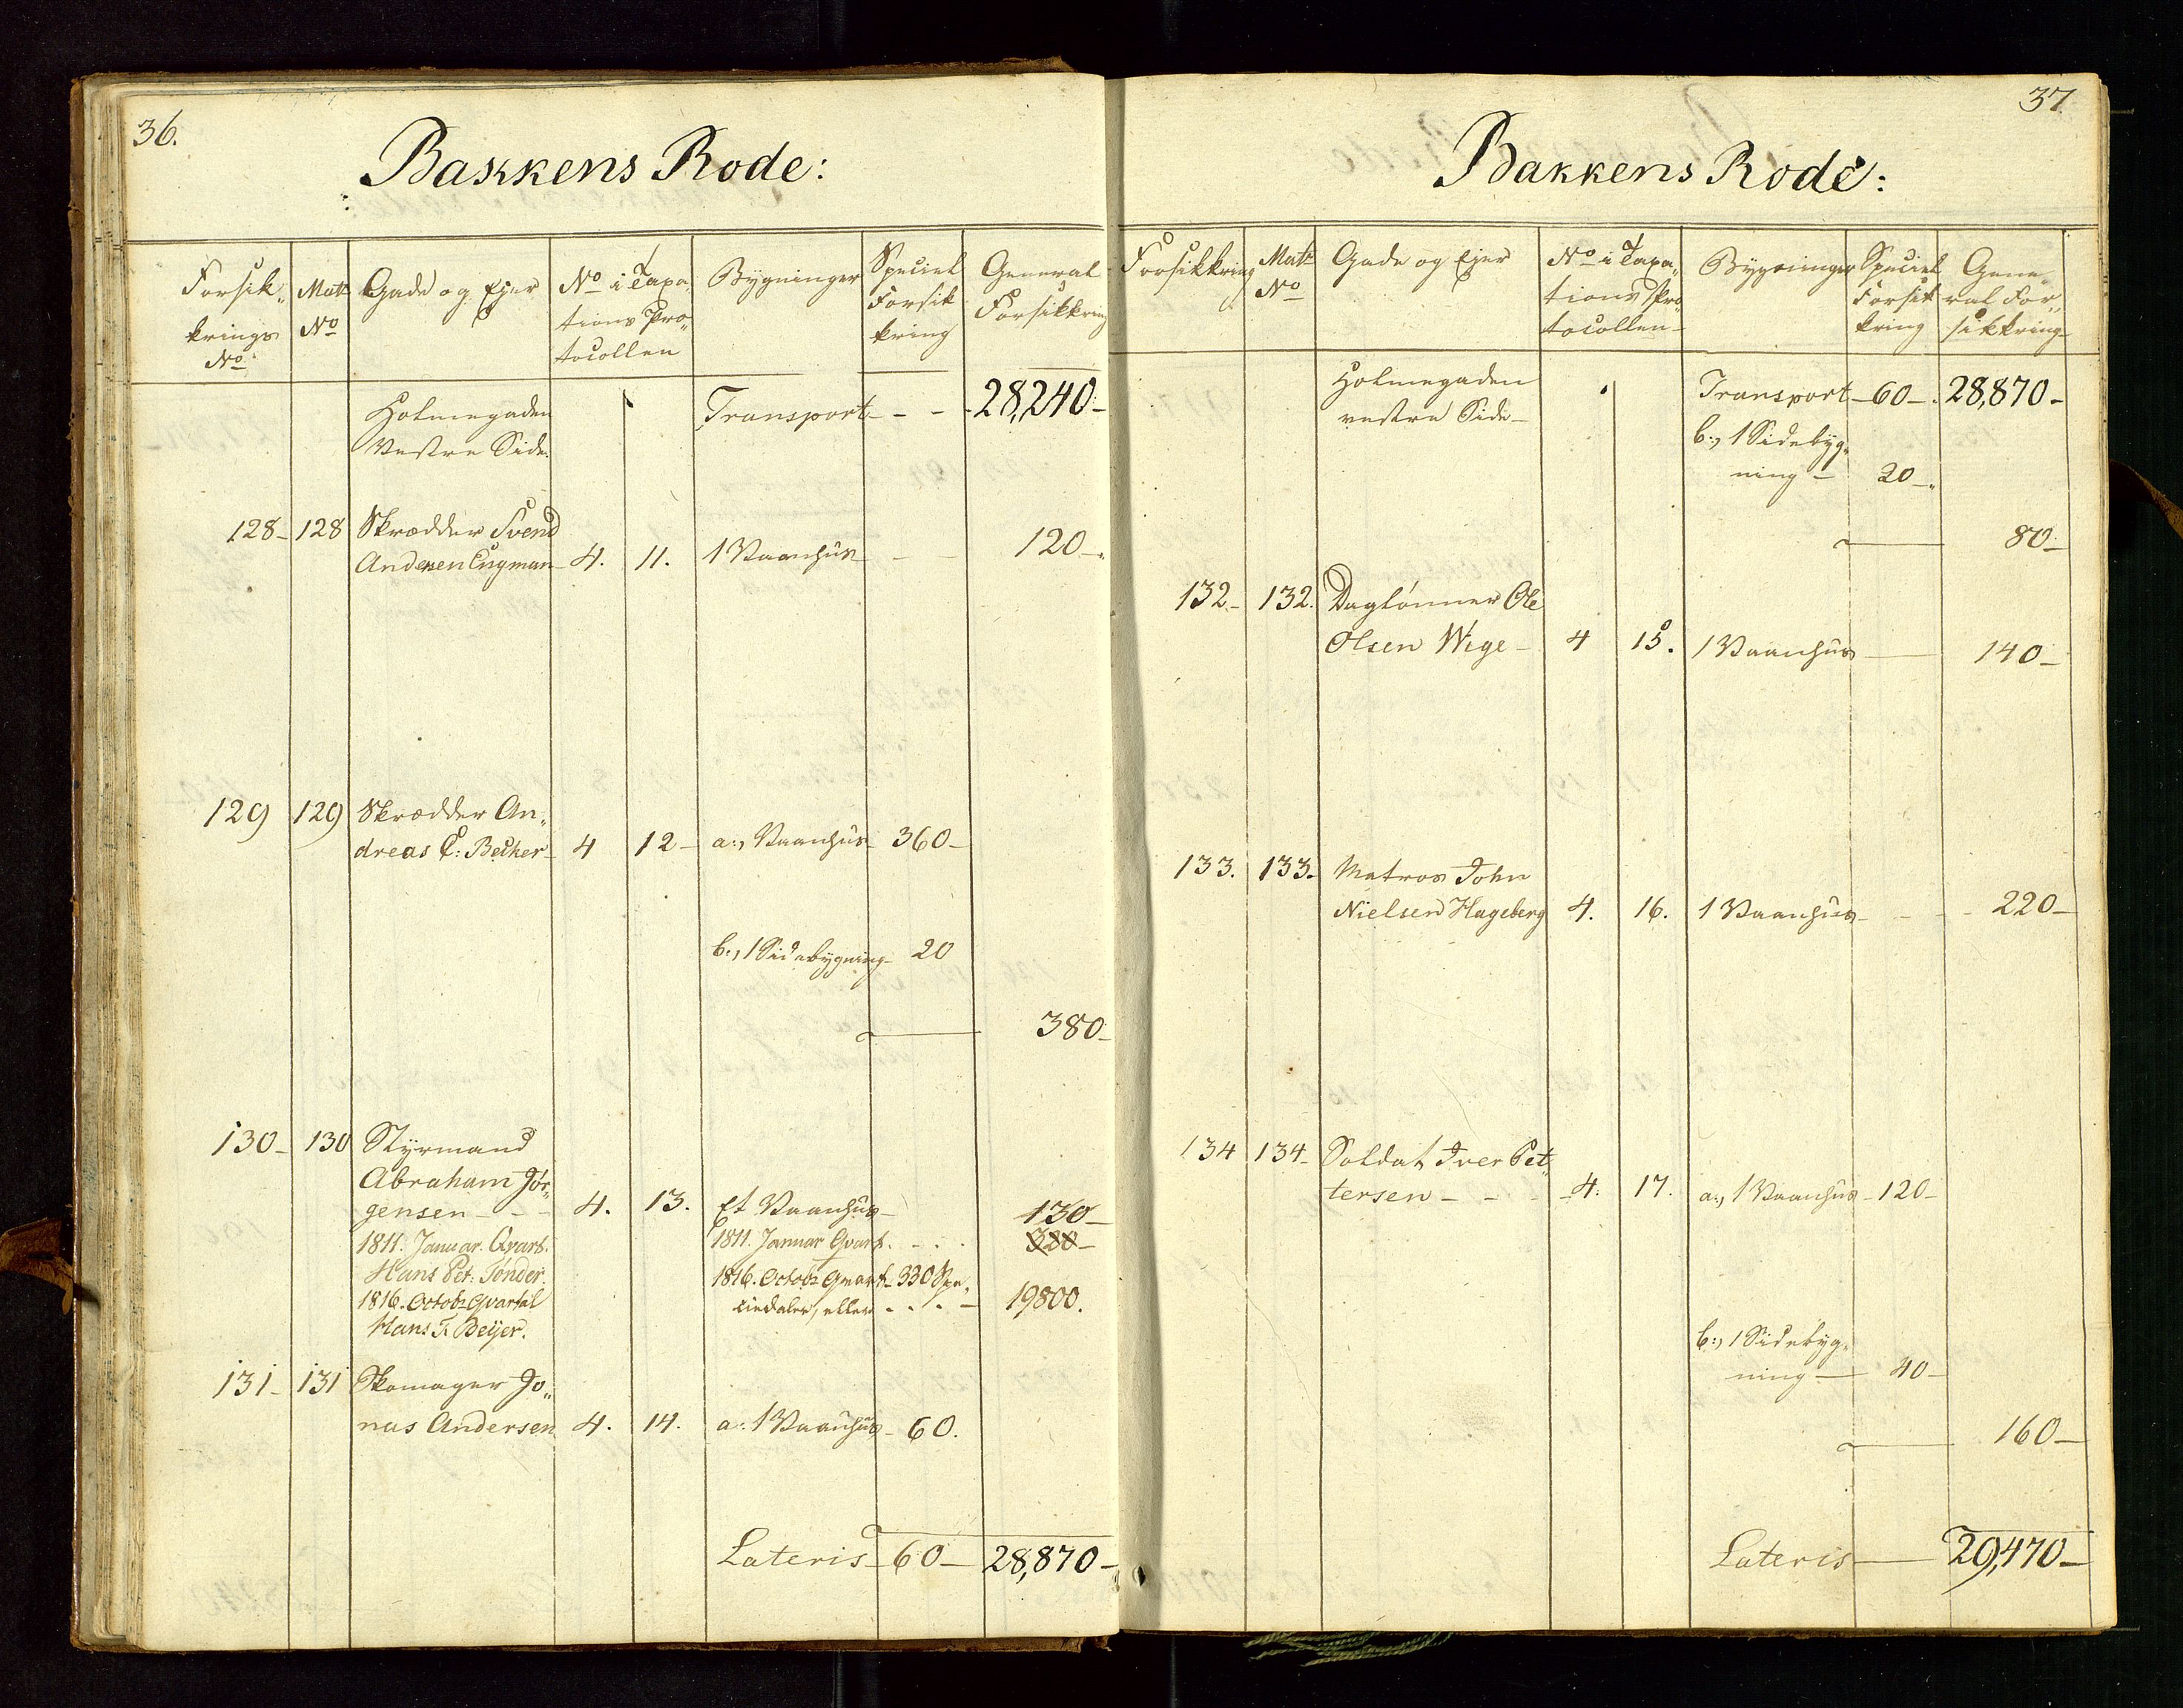 36.
Bakkens Rode:
Forsik„
krings
No
Matr
No
Gade og Ejer
No i Taxa„
tions Pro„
tocollen
Bygninger
Speciel
Forsik
kring
General
Forsikkring
Holmegaden
Vestre Side.
Transport - - - 28,240 -
128 - 128 Skrædder Svend
Andersen Engman - 4. 11. 1 Vaanhus - - 120 -
129 129 Skrædder An„
dreas C: Becher - 4 12 - a:, Vaanhus - 360 -
b:, 1 Sidebygning - 20
380 -
130 - 130 Styrmand
Abraham Jør„
gensen - - - 4. 13. Et Vaanhus - 130 -
1811. Januar. Qvart. 1811. Januar Qvart. - . . 380 -
Hans Pet: Tønder. 1816. Octobr Qvart - 330 Spe„
1816. Octobr Qvartal ciedaler, eller - . . - 19800.
Hans F. Beijer.
131 - 131 Skomager Jo„
nas Andersen 4. 14. a: 1 Vaanhus - 60.
Lateris - 60 - 28,870 -
37
Bakkens Rode:
Forsikkring
Matr
No
Gade og Ejer
No i Taxa„
tions Pro
tocollen -
Bygninger
Speciel
Forsik
kring
Gene„
ral For„
sikkring -
Holmegaden
vestre Side -
Transport - 60 - . 28,870 -
b:, 1 Sidebyg„
ning - 20 -
80 -
132 - 132. Daglønner Ole
Olsen Wige - 4 15. 1 Vaanhus 140 -
133. 133. Matros John
Nielsen Hageberg 4. 16. 1 Vaanhus - - - 220 -
134 134 - Soldat Iver Pet„
tersen - - - 4. 17. a:, 1 Vaanhus - 120 -
b:, 1 Sidebyg„
ning - 40 -
160 -
Lateris 29,470 -